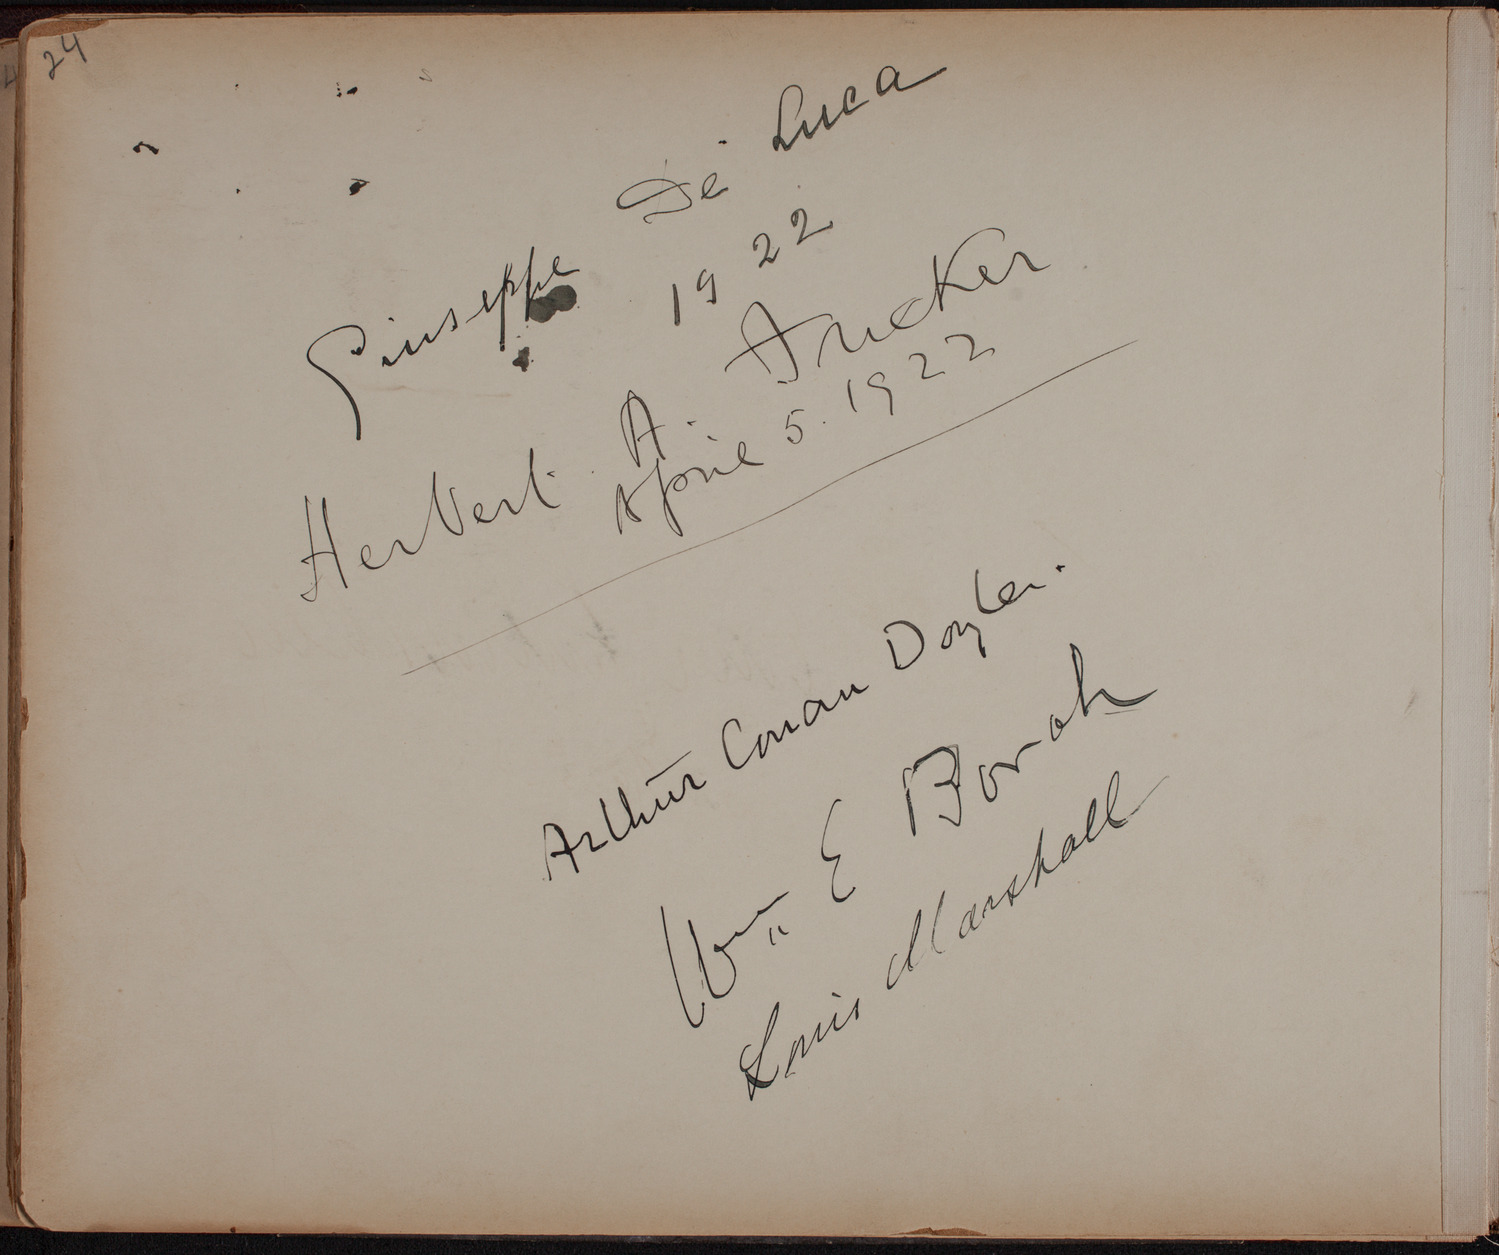 24
Giuseppe De Luca
1922
Herbert A.
April 5. 1922
Arthur Conan Doyle.
Wm E Borah
Louis Marshall